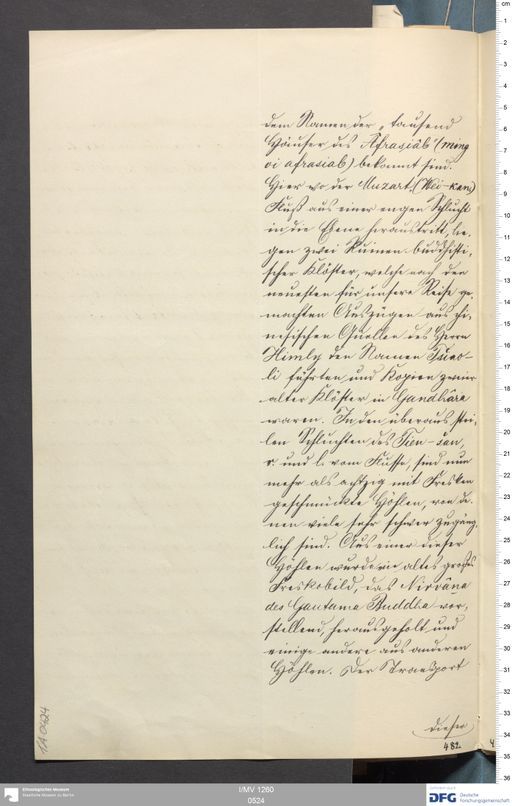 dem Namen der „tausend
Häuser des Afrasiâb" (ming
oi afrasiab) bekannt sind.
Hier wo der Muzart (Wei-kan)
Fluß aus einer engen Schlucht
in die Ebene heraustritt, lie-
gen zwei Ruinen buddhisti-
scher Klöster, welche nach den
neuesten für unsere Reise ge-
machten Auszügen aus chi-
nesischen Quellen des Herrn
Himly den Namen Tsiao-
li führten und Kopien zweier
alter Klöster in Gandhâra
waren. In den überaus stei-
len Schluchten des Tien-šan,
r. und l. vom Flusse, sind nun
mehr als achtzig mit Fresken
geschmückte Höhlen, von de-
nen viele sehr schwer zugäng-
lich sind. Aus einer dieser
Höhlen wurde ein altes großes
Freskobild, das Nirvâṇa
des Gautama Buddha vor-
stellend, herausgeholt und
einige andere aus anderen
Höhlen. Der Transport
dieser
482
I/MV 1260
0524
Ethnologisches Museum
Staatliche Museen zu Berlin
DFG Deutsche
Forschungsgemeinschaft